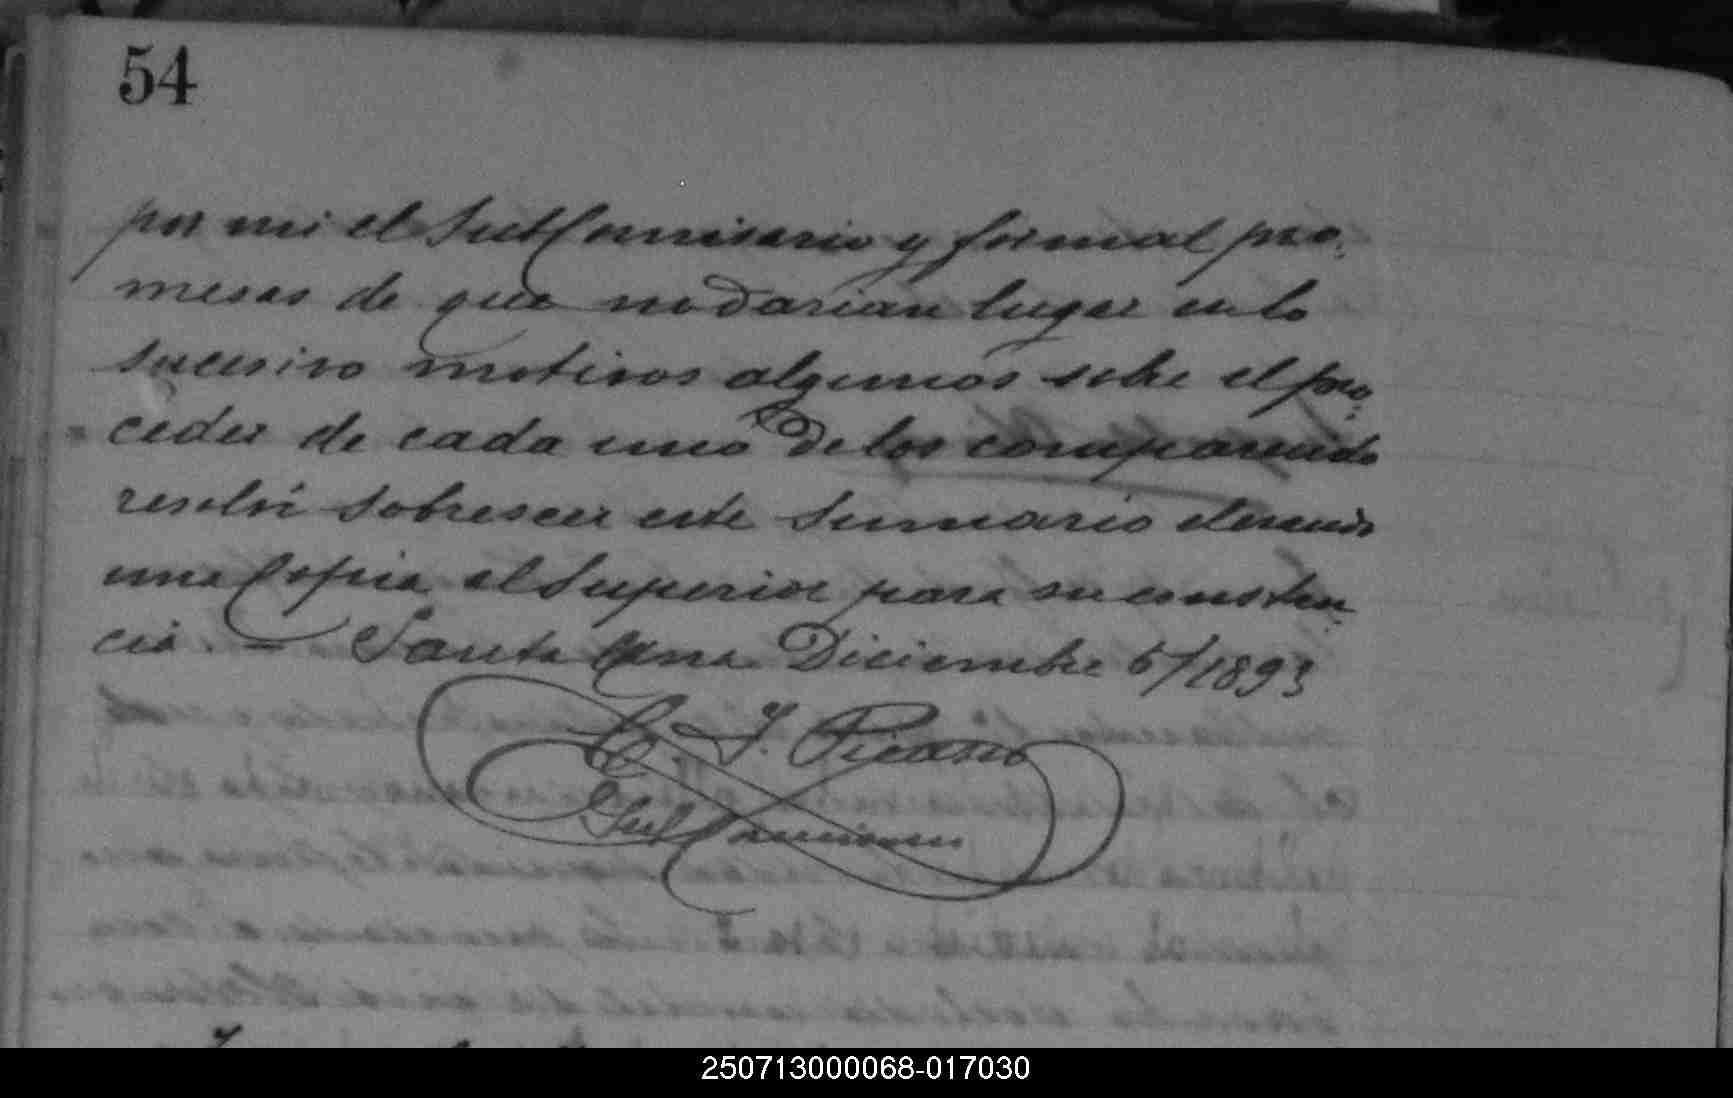 54
por mi el SubComisario y formal pro-
mesas de que no darian lugar en lo
sucesivo motivos algunos sobre el pro-
ceder de cada uno de los comparendo
resolví sobreseer este Sumario elevando
una Copia al Superior para su constan-
cia. — Santa Ana Diciembre 6/1893
J. Picasso
Sub Comisario
250713000068-017030